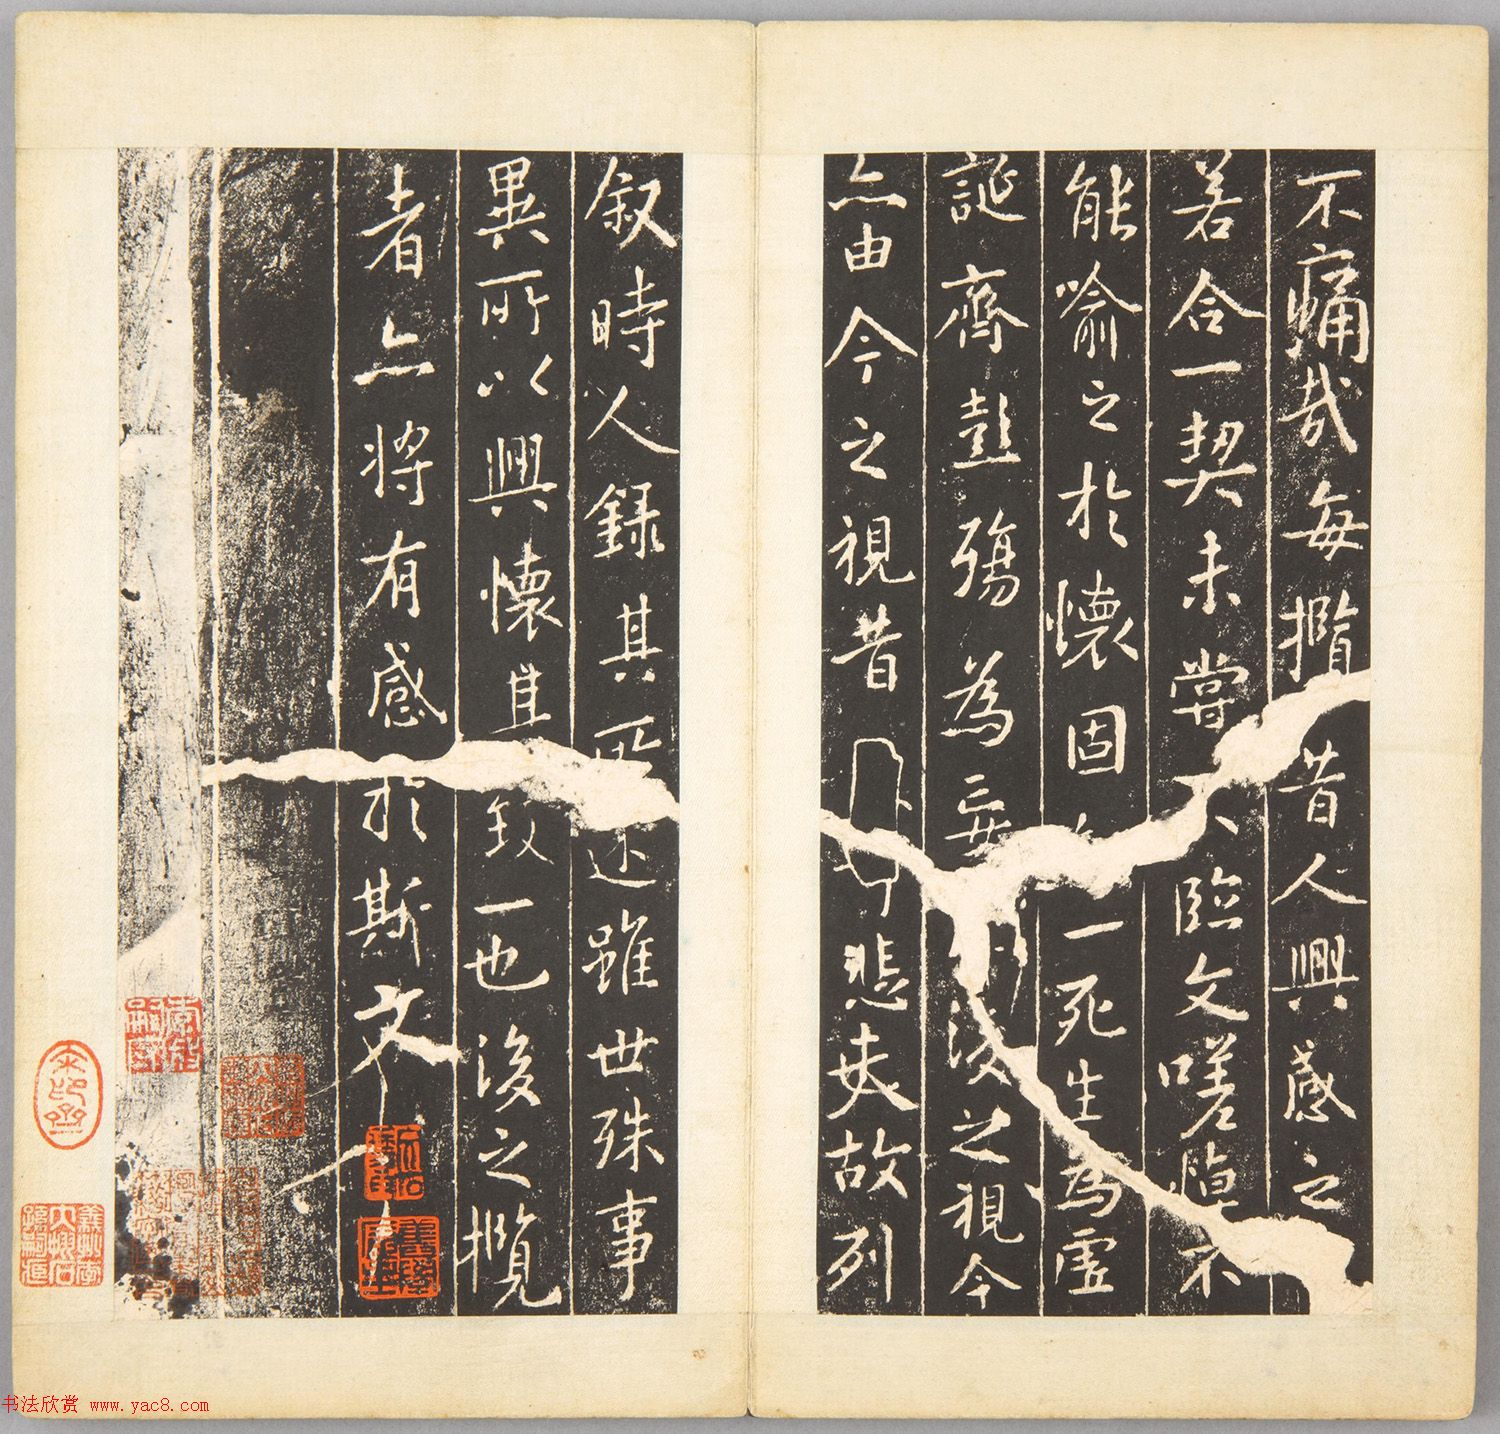 不痛哉每攬昔人興感之
若合一契未嘗臨文嗟悼不
能喻之於懷固一死生為虛
誕齊彭殤為妄後之視今
亦由今之視昔悲夫故列
叙時人錄其所述雖世殊事
異所以興懷其致一也後之攬
者亦將有感於斯文
书法欣赏 www.yac8.com